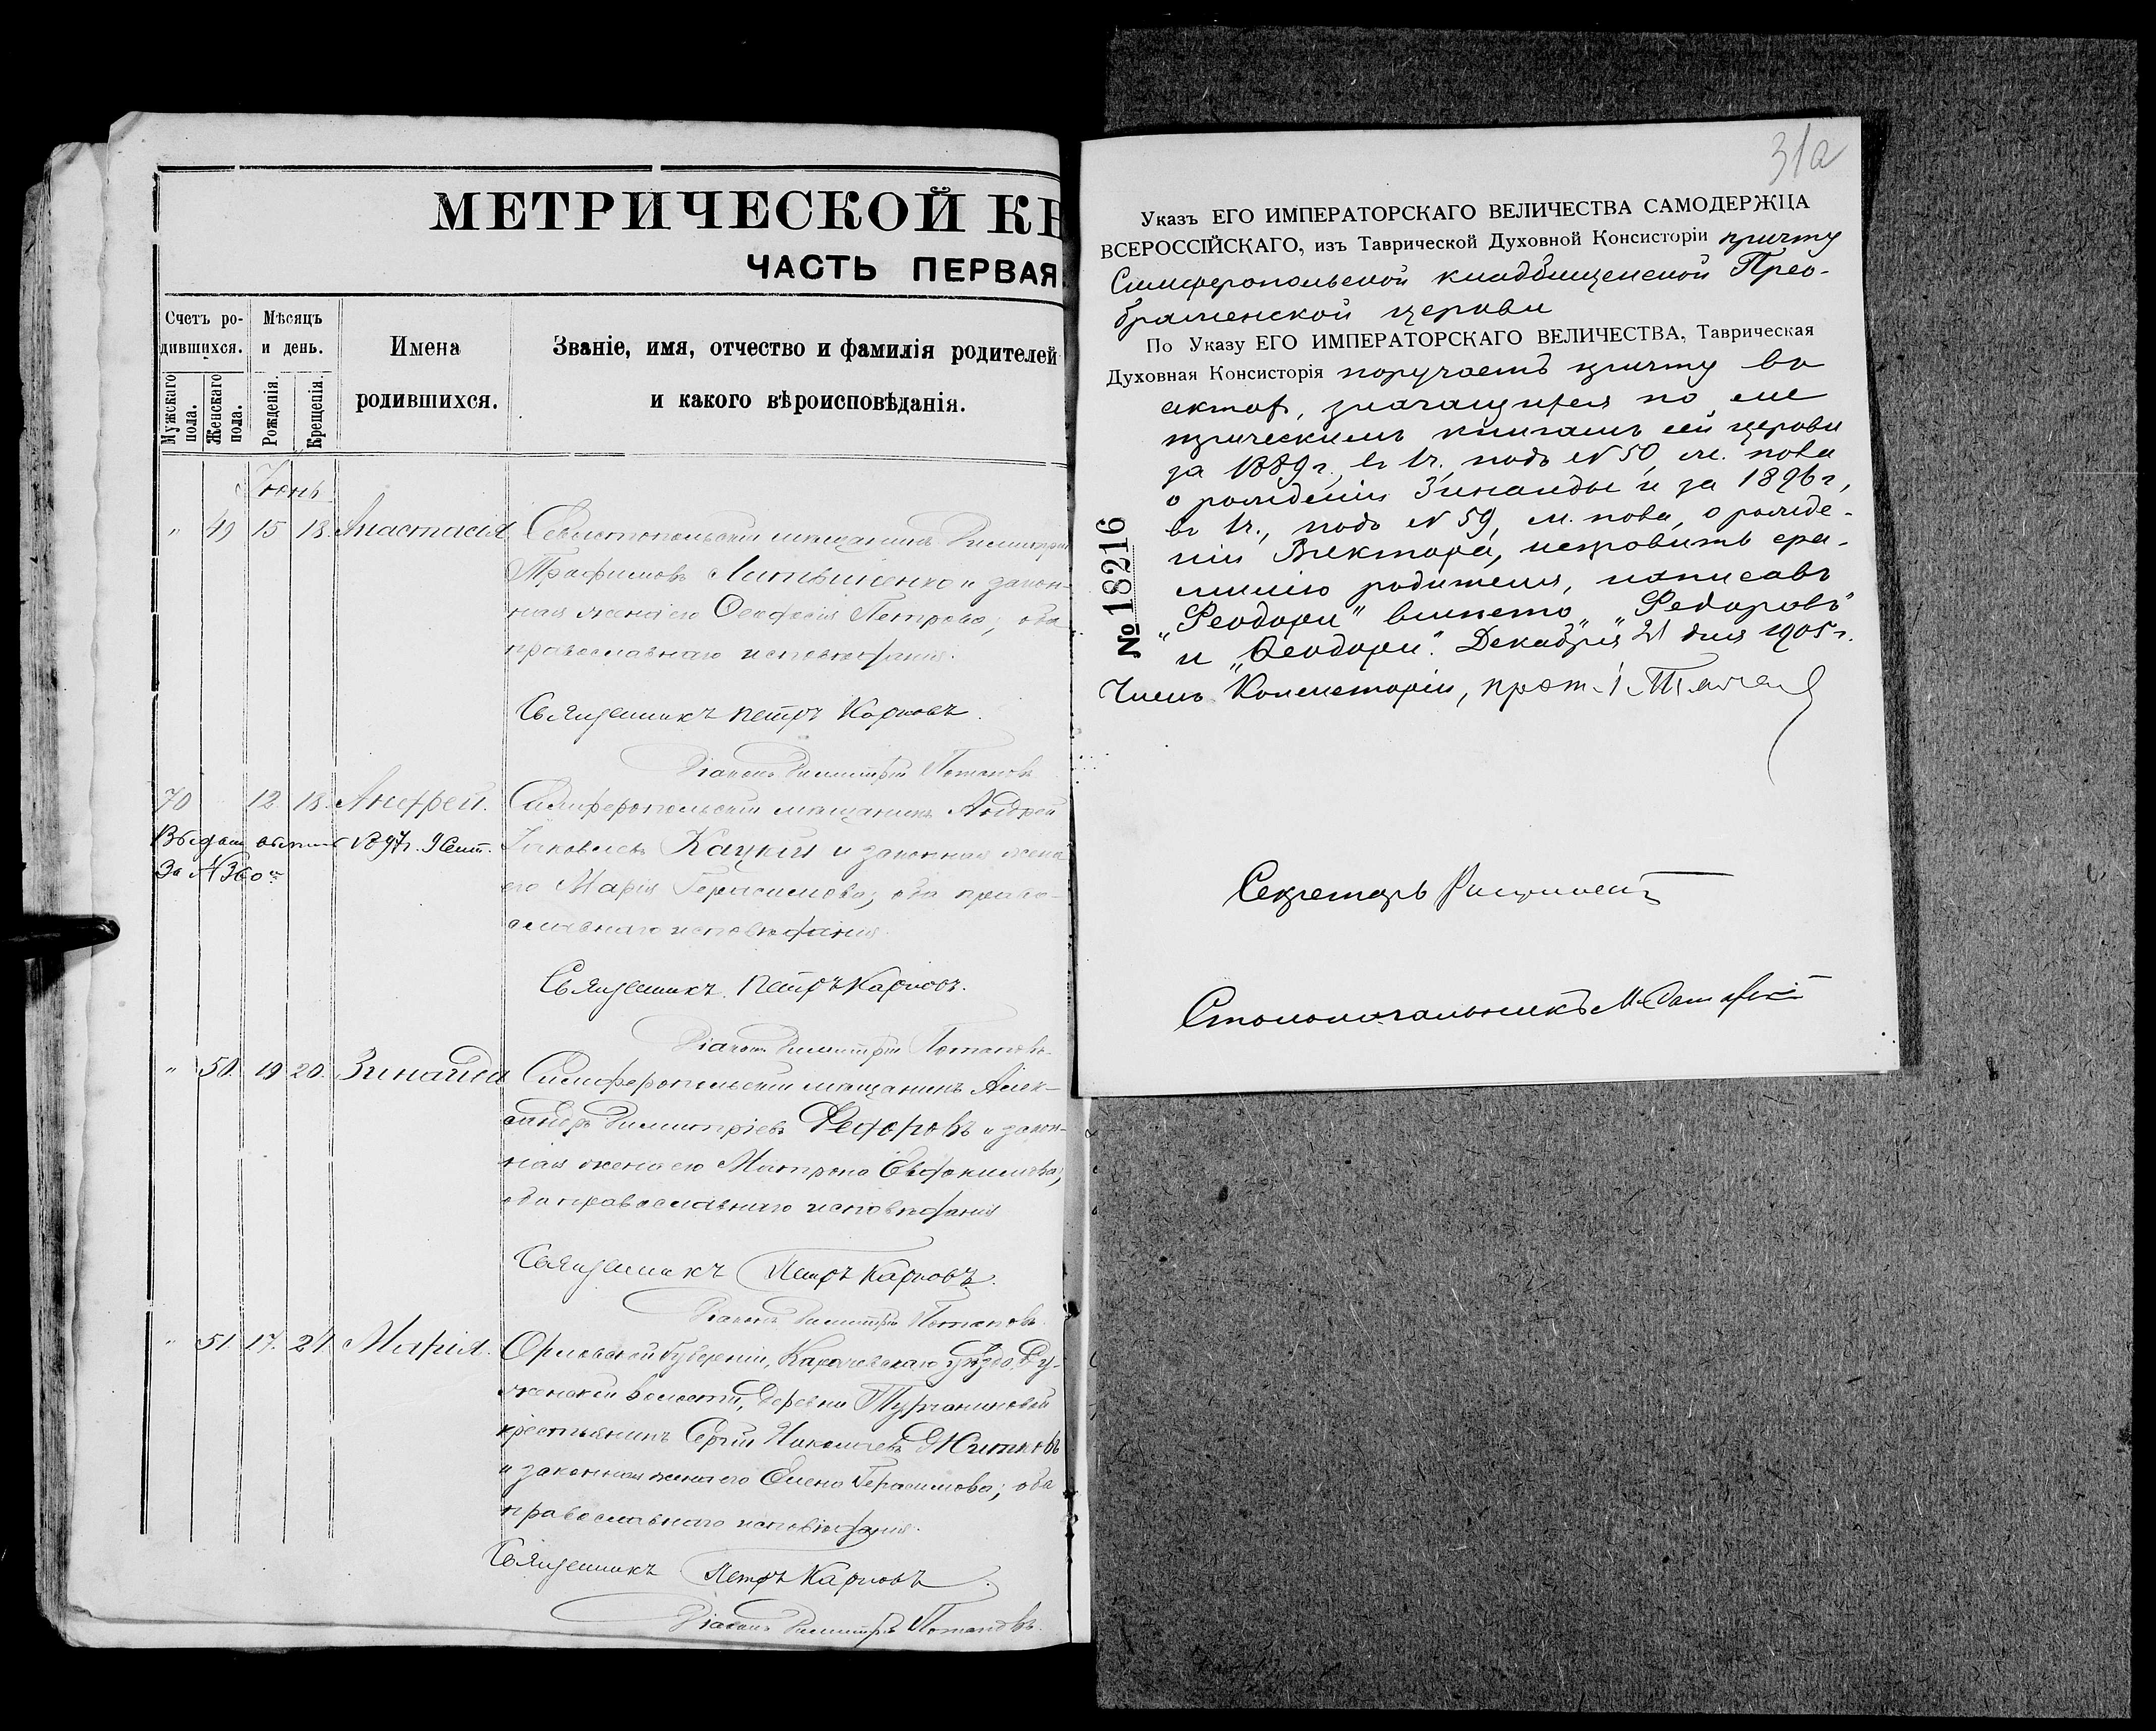 МЕТРИЧЕСКОЙ КН
ЧАСТЬ ПЕРВАЯ
Счетъ ро-
дившихся.
Мужскаго пола.
Женскаго пола.
Мѣсяцъ
и день.
Рожденія.
Крещенія.
Имена
родившихся.
Званіе, имя, отчество и фамилія родителей
и какого вѣроисповѣданія.
Іюнь
" 49 15 18. Анастасія Севастопольскій мѣщанинъ Димитрій
Трофимовъ Литвиненко и закон-
ная жена его Феодосія Петрова; оба
православнаго исповѣданія.
Священникъ Петръ Карповъ.
Діаконъ Димитрій Потаповъ
70 12 18. Андрей. Симферопольскій мѣщанинъ Андрей
Яковлевъ Кацкій и законная жена
его Марія Герасимова; оба право-
славнаго исповѣданія.
Выдан 1897г. 9 Сент.
За № 360
Священникъ Петръ Карповъ.
Діаконъ Димитрій Потаповъ.
" 50. 19 20. Зинаида Симферопольскій мѣщанинъ Алек-
сандръ Димитріевъ Федоровъ и закон-
ная жена его Матрона Евдокимова;
оба православнаго исповѣданія
Священникъ Петръ Карповъ.
Діаконъ Димитрій Потаповъ.
" 51. 17. 21 Марія. Орловской губерніи, Карачевскаго уѣзда,
волости, деревни
крестьянинъ Сергій Николаевъ Житковъ
и законная жена его Елена Герасимова; оба
православнаго исповѣданія.
Священникъ Петръ Карповъ.
Діаконъ Димитрій Потаповъ.
31а
Указъ ЕГО ИМПЕРАТОРСКАГО ВЕЛИЧЕСТВА САМОДЕРЖЦА
ВСЕРОССІЙСКАГО, изъ Таврической Духовной Консисторіи причту
Симферопольской кладбищенской Прео-
браженской церкви
По Указу ЕГО ИМПЕРАТОРСКАГО ВЕЛИЧЕСТВА, Таврическая
Духовная Консисторія поручаетъ причту въ
актах, значащихся по ме
трическимъ книгамъ сей церкви
за 1889 г., в 1 ч., подъ № 50, ж. пола
о рожденіи Зинаиды и за 1896 г,
въ 1 ч., подъ № 59, м. пола, о рожде-
ніи Виктора, исправить фа-
милію родителя, написавъ
"Феодори" вмѣсто "Федоровъ"
и "Ѳеодори". Декабря 21 дня 1905 г.
№ 18216
Членъ Консисторіи, прот. І.
Секретарь
Столоначальникъ М.